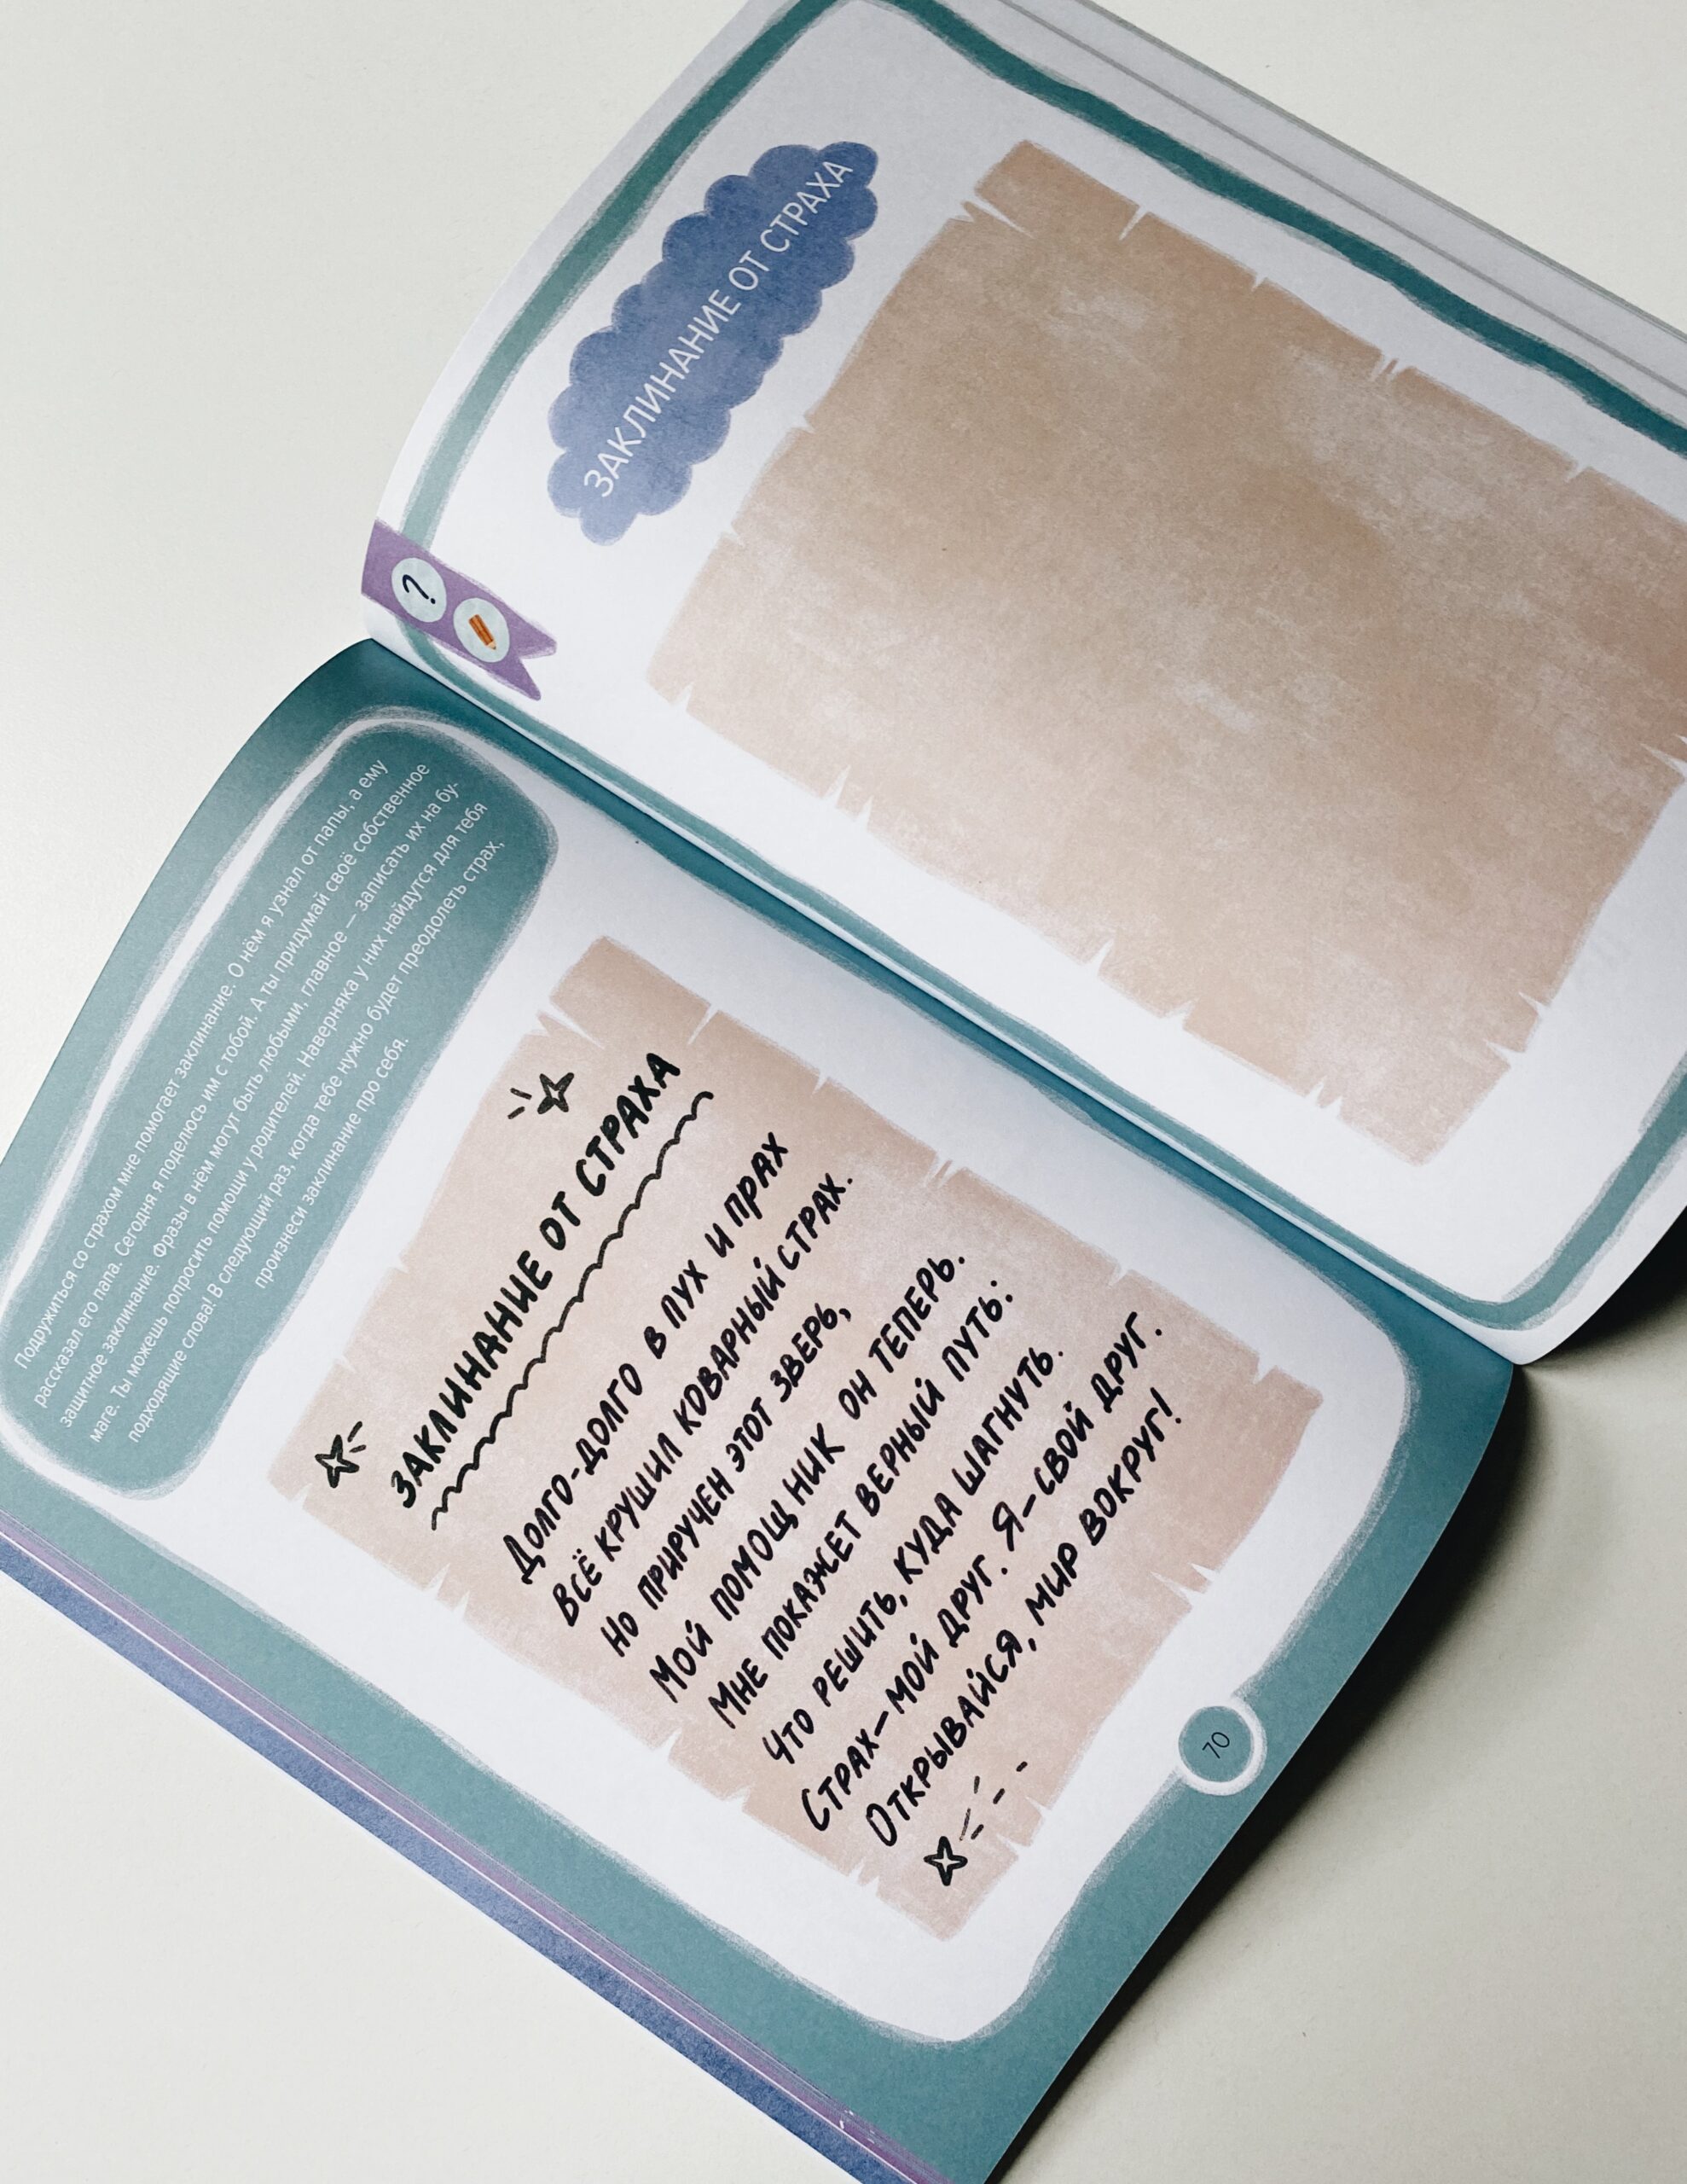 Подружиться со страхом мне помогает заклинание. О нём я узнал от папы, а ему
рассказал его папа. Сегодня я поделюсь им с тобой. А ты придумай своё собственное
защитное заклинание. Фразы в нём могут быть любыми, главное — записать их на бу-
маге. Ты можешь попросить помощи у родителей. Наверняка у них найдутся для тебя
подходящие слова! В следующий раз, когда тебе нужно будет преодолеть страх,
произнеси заклинание про себя.
ЗАКЛИНАНИЕ ОТ СТРАХА
Долго-долго в пух и прах
Всё крушил коварный страх.
Но приручен этот зверь,
Мой помощник он теперь.
Мне покажет верный путь:
Что решить, куда шагнуть.
Страх – мой друг. Я – свой друг.
Открывайся, мир вокруг!
70
?
ЗАКЛИНАНИЕ ОТ СТРАХА